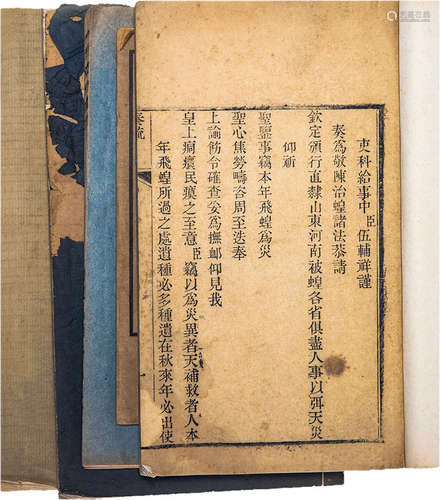 吏科給事中臣伍輔祥謹
奏為敬陳治蝗諸法恭請
欽定頒行直隸山東河南被蝗各省俱盡人事以弭天災
仰祈
聖鑒事竊本年飛蝗為災
聖心焦勞疇咨周至迭奉
上諭飭令確查妥為撫䘏仰見我
皇上痌瘝民瘼之至意臣竊以為災異者天補救者人本
年飛蝗所過之處遺種必多種遺在秋來年必出使
奏疏